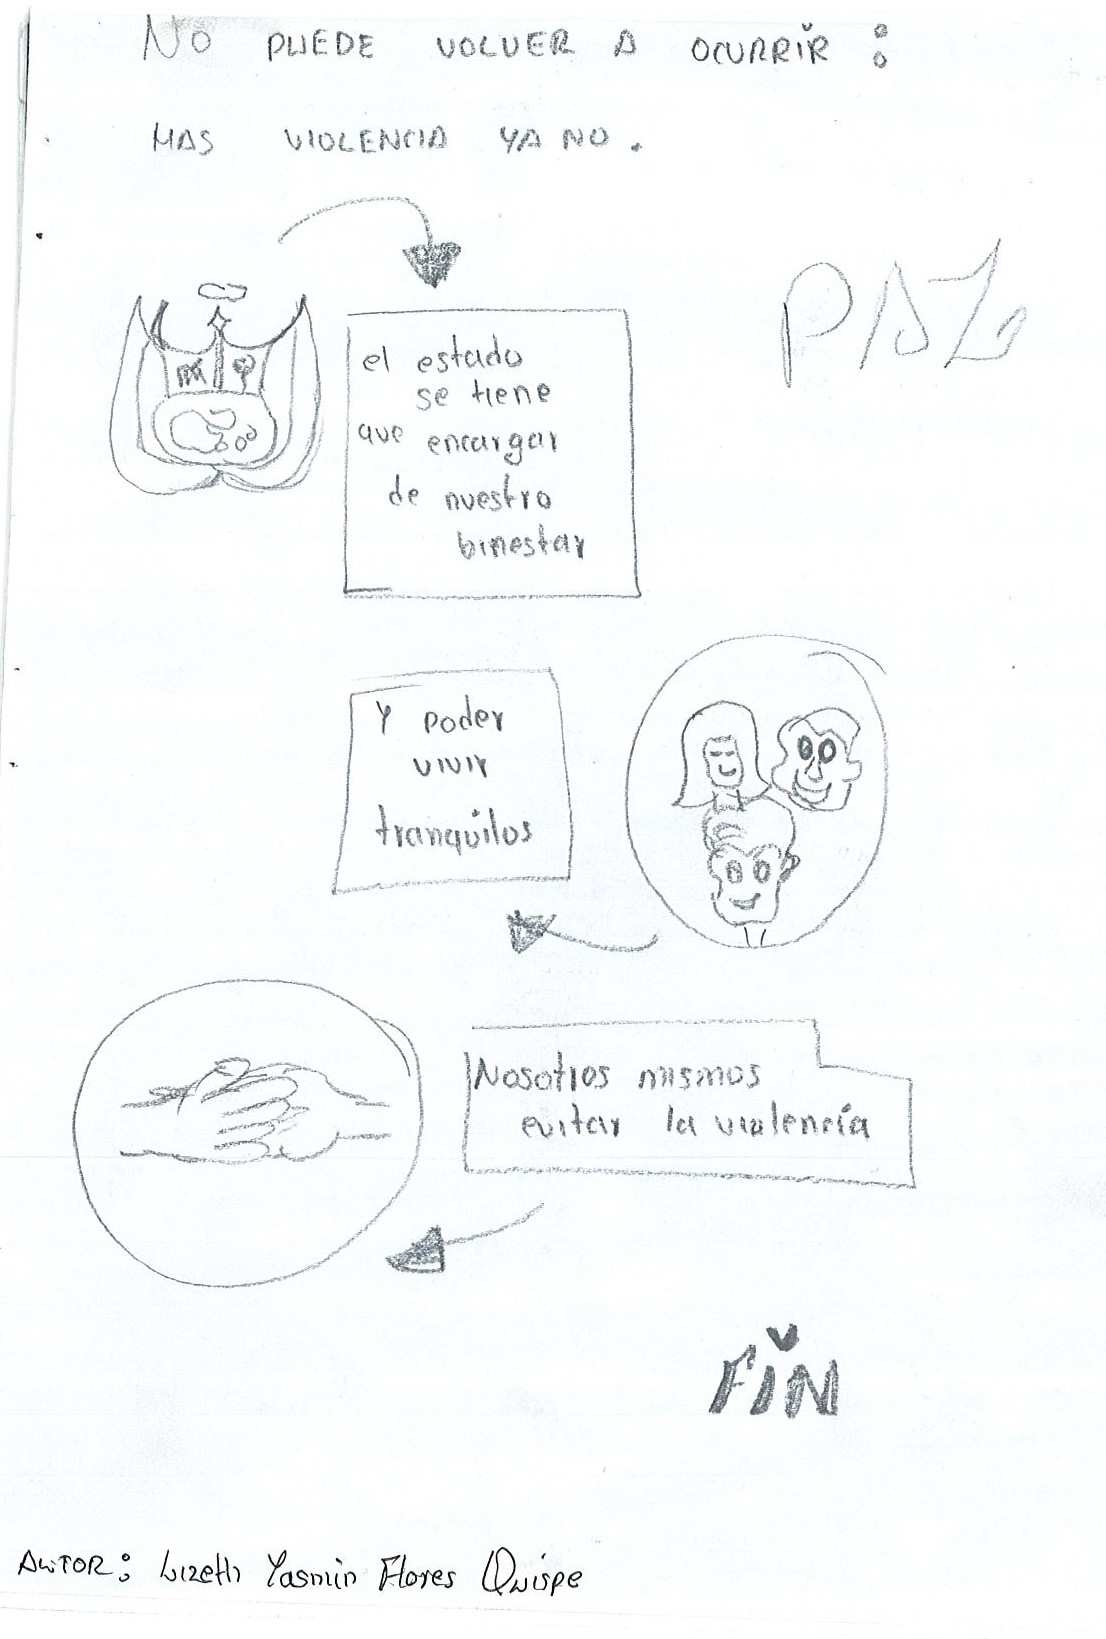 NO PUEDE VOLVER A OCURRIR :
MAS VIOLENCIA YA NO.
PAZ
el estado
se tiene
que encargar
de nuestro
binestar
Y poder
vivir
tranquilos
Nosotros mismos
evitar la violencia
FIN
AUTOR: Lizeth Yasmin Flores Quispe